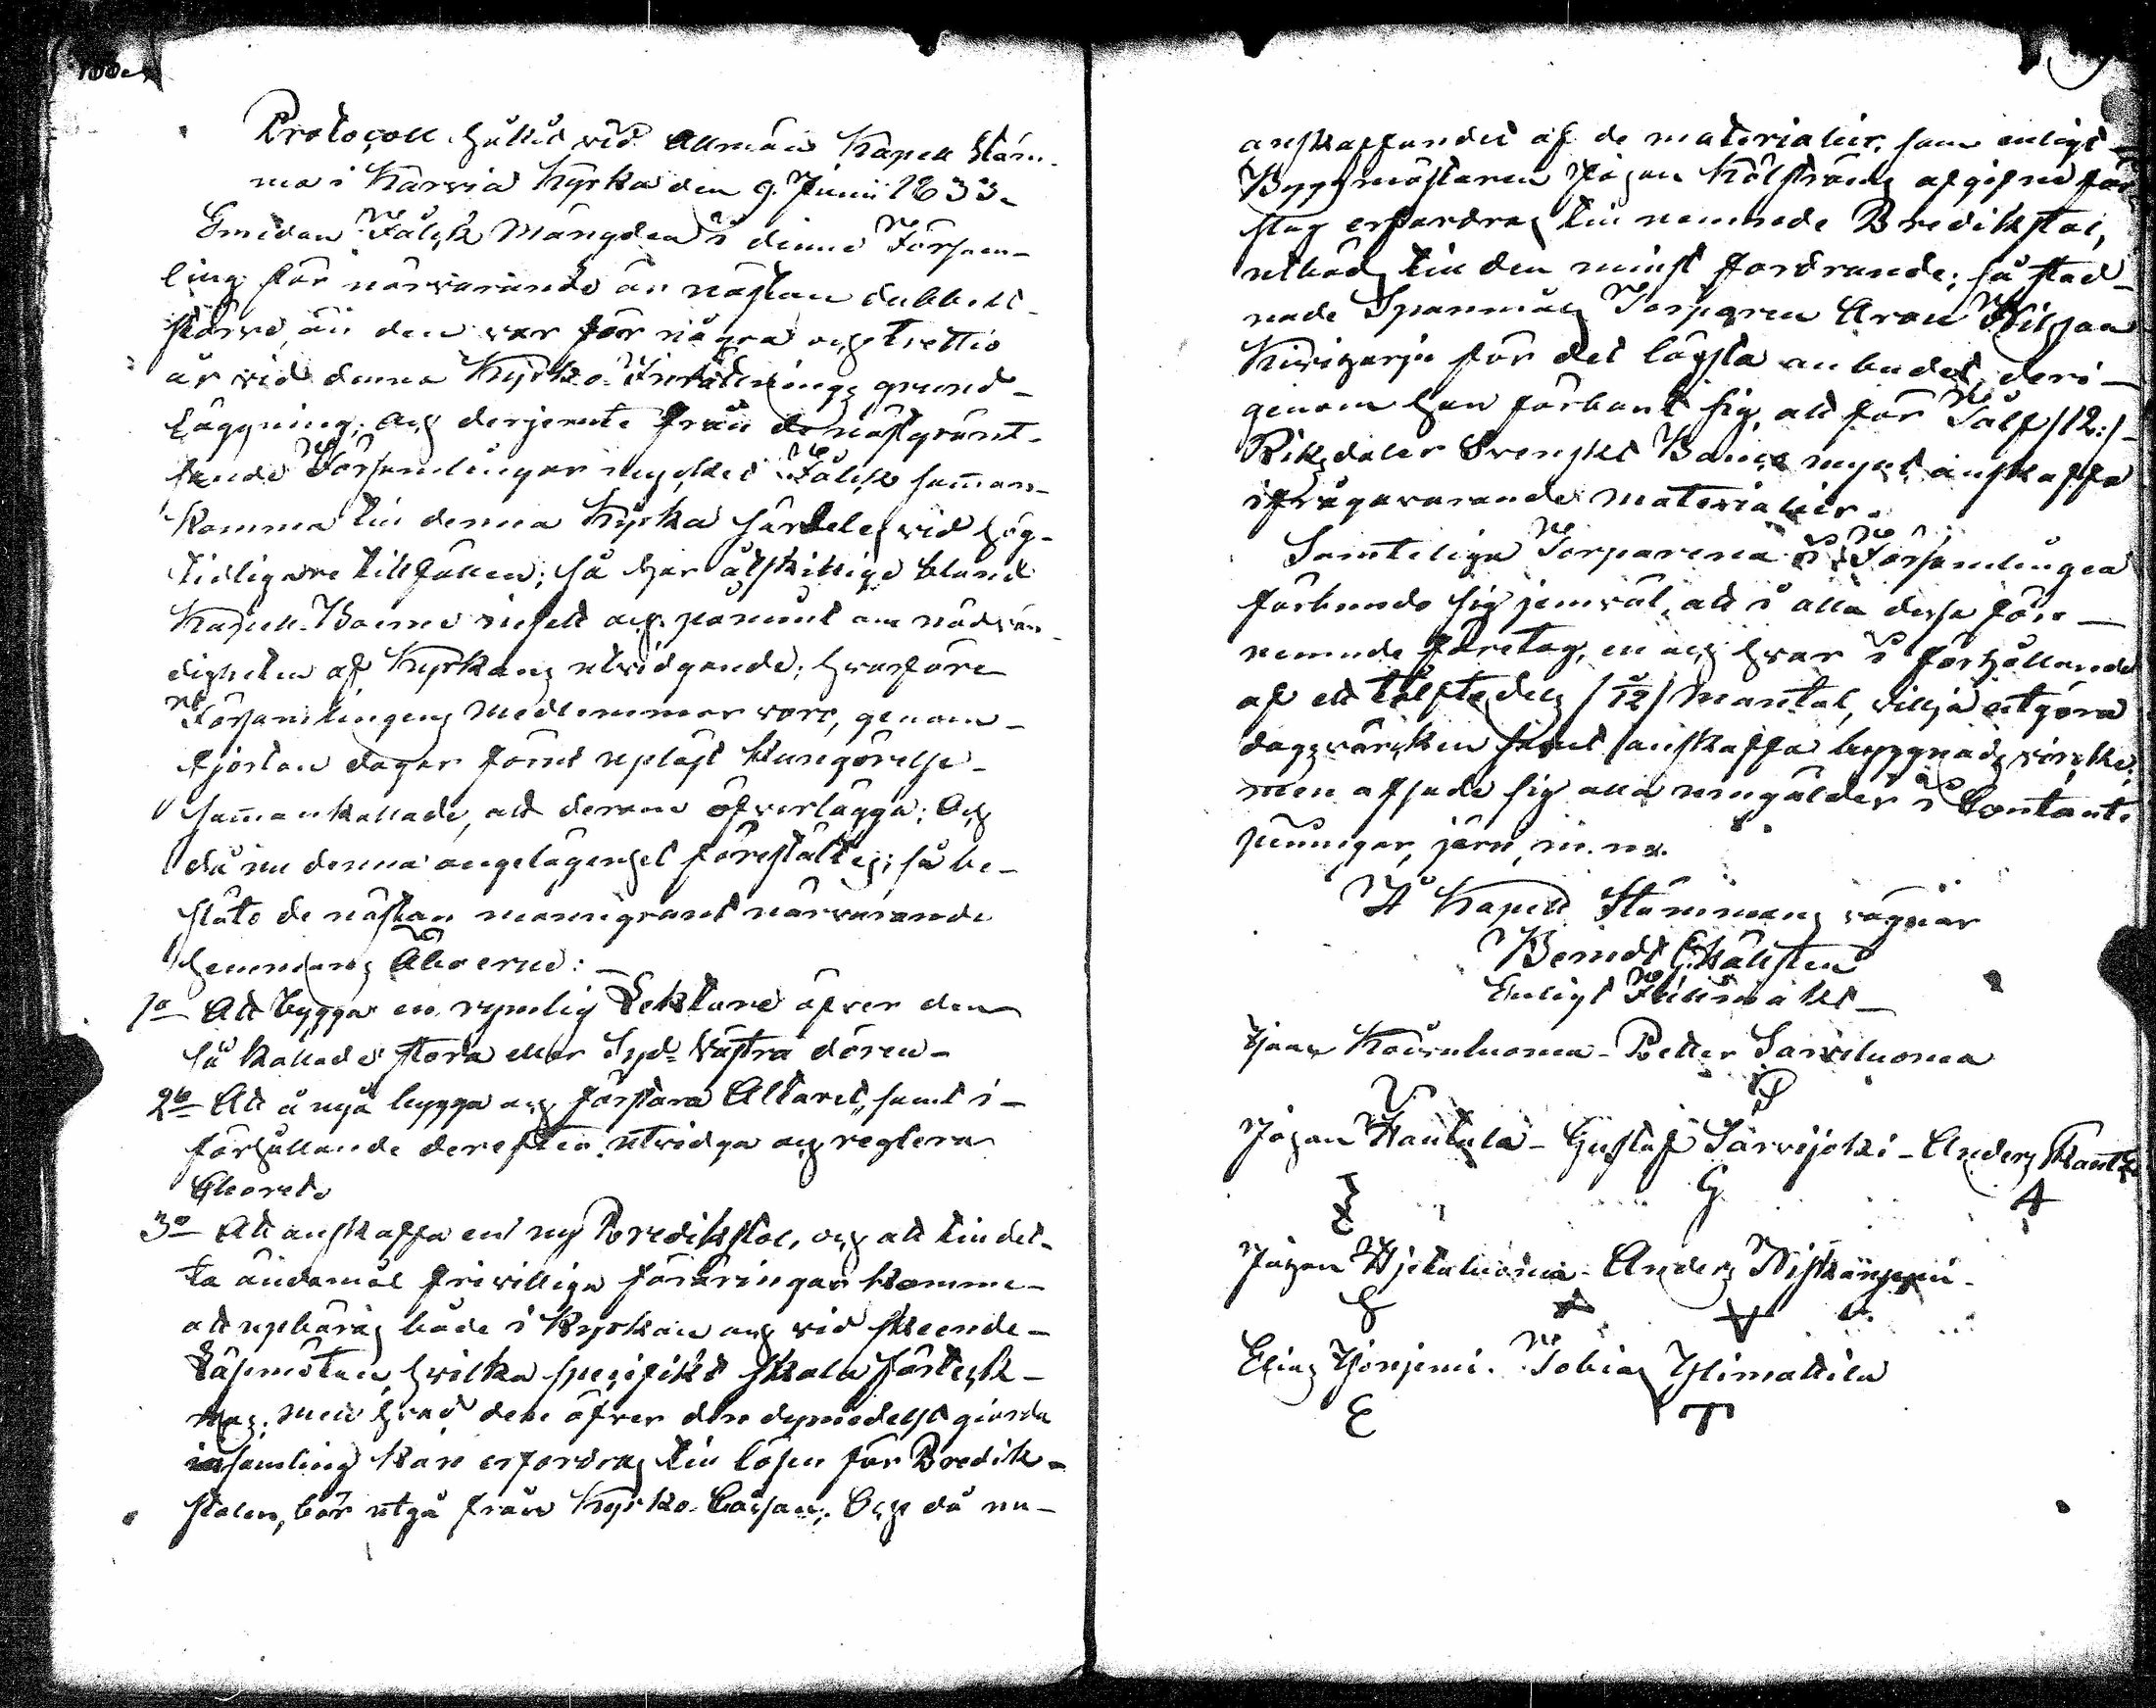 Protocoll hållit vid Allmän Kapell Stäm-
ma i Karvia Kyrka den 9. Junii 1833.
Emedan Folck Mängden i denna Försam-
ling för närvarande är nästan dubbelt
större, än den var för några och trettio
år vid denna Kyrko Inrättnings grund-
läggning; och derjemte från de näst gränt-
sande Församlingar mycket Folck samman-
komma till denna Kyrka särdeles vid hög-
tidligare tillfällen; så har åtskillige bland
Kapell-Boerne insett och påmint om nödvän-
digheten af Kyrkans utvidgande; hvarföre
Församlingens Medlemmar voro, genom
fjorton dagar förut upläst Kungörelse
sammankallade, att derom öfverlägga; Och
då nu denna angelägenhet föreställtes; så be-
slöto de nästan manngrant närvarande
Hemmans Åboerne:
1o Att bygga en rymlig Lektare öfver den
så kallade stora eller Syd-Västra dören
2o Att å nyo bygga och förstora Altaret, samt i
förhållande derefter utvidga och reglera
Choret.
3o Att anskaffa en ny Predikstol, och att till det-
ta ändamål frivilliga föräringar komma
att upbäras både i Kyrkan och vid skeende
Läsmöten, hvilka specifikt skola förteck-
nas; men hvad den öfver den dymedelst gjorda
insamling kan erfordras till lösen för Predik-
stolen, bör utgå från Kyrko-Cassan; Och då nu
anskaffandet af de materialier, som enligt
Byggmästaren Johan Kölström afgifne för
slag erfordras till nemnde Predikstol,
utböds till den minst fordrande; så stad-
nade Spanmåls Torparen Aron
Kiviharju för det lägsta anbudet, deri-
genom han förbant sig, att för Tolf /12:/
Riksdaler Svenskt Banco mynt anskaffa
ifrågavarande materialier.
Samtelige Torparena i Församlingen
förbundo sig jemväl, att i alla dessa före-
nemnde företag, en och hvar i förhållande
af ett tolftedels /1/12/ Mantal, villja utgöra
dagsvärcken samt anskaffa byggnads virke;
men afsade sig alla umgälder i Contant.
penningar, järn, m. m.
På Kapell Stämmans vägnar
Berndt Chr. Källsten
Enligt Fullmakt
Petter Sarviluoma
P
Johan Hautala - Gustaf Sarvijoki - Anders
I G A
Johan - Anders
Elias Ylimattila
E T